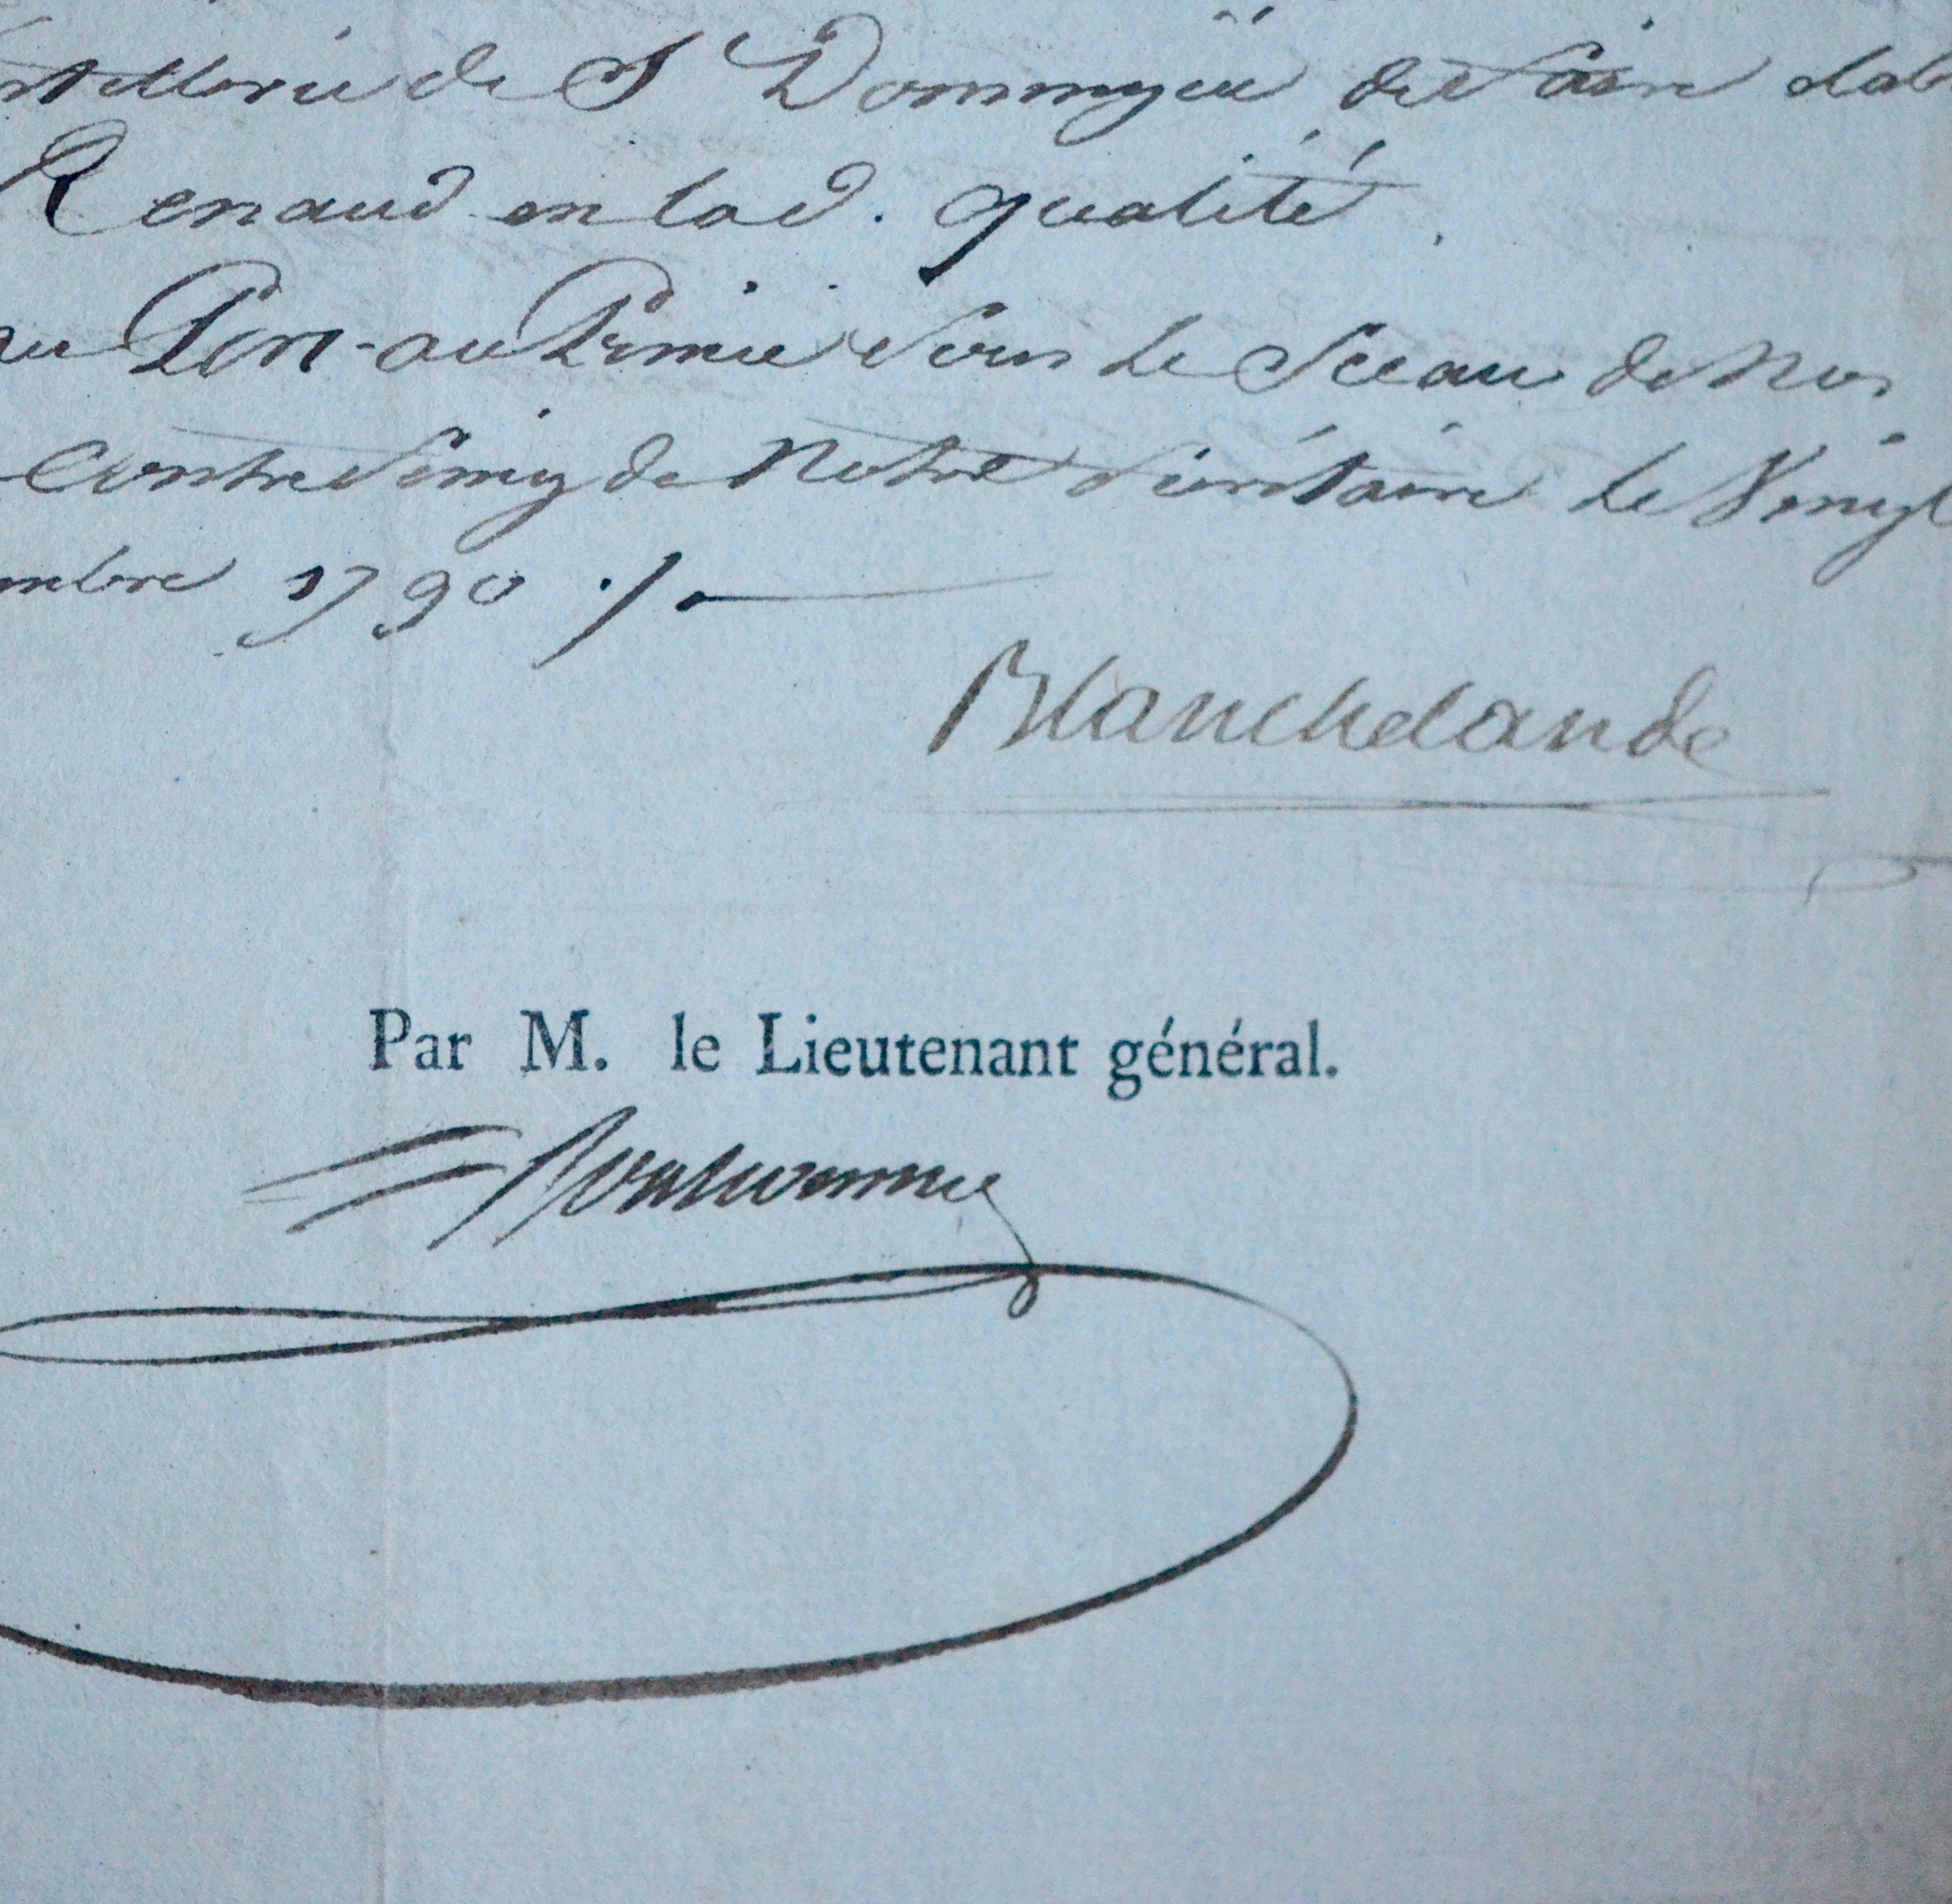 rtillerie de St Domingüe de faire étab
Renaud en lad. qualité.
au Port-au-Prince sous le Sceau de nos
Contreseing de Notre Secrétaire le Vingt
mbre 1790 ./.
Blanchelande
Par M. le Lieutenant général.